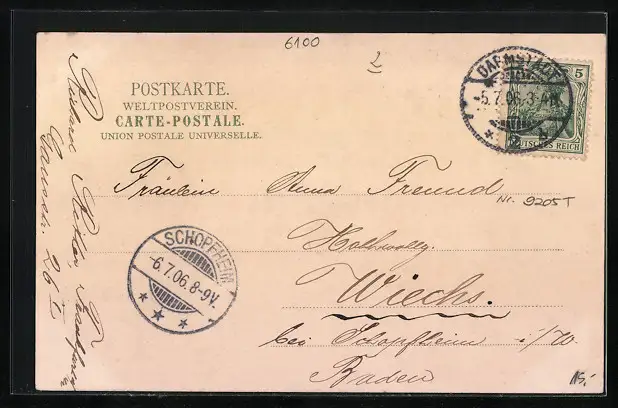 6100
2
POSTKARTE.
WELTPOSTVEREIN.
CARTE-POSTALE.
UNION POSTALE UNIVERSELLE.
DARMSTADT
-5.7.06. 3-4N.
* 2 b.
5
DEUTSCHES REICH
Fräulein Anna Freund
Nr. 9205T
SCHOPFHEIM
-6.7.06. 8-9V.
* * *
Wiechs.
bei Schopfheim i/W.
Baden
15,-
26 I